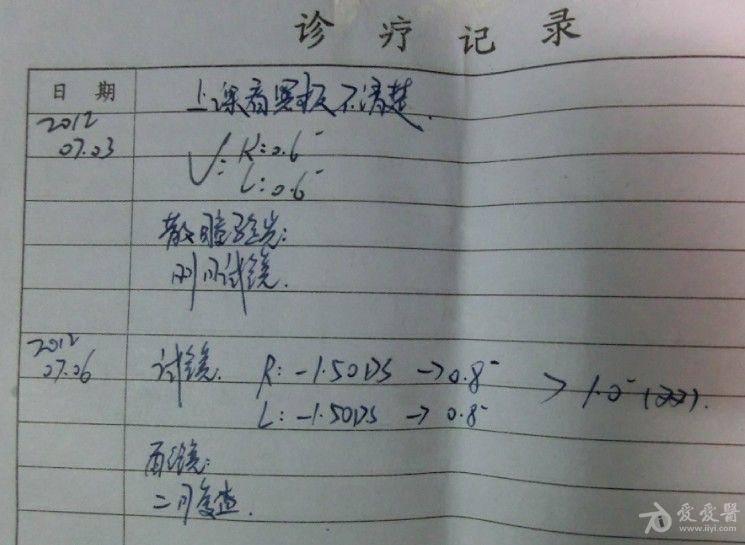 诊疗记录
日期
上课看黑板不清楚.
2012
07.03
V: R: 0.6⁻
L: 0.6⁻
散瞳验光:
试镜.
2012
07.06
试镜. R: -1.50DS → 0.8⁻
L: -1.50DS → 0.8⁻
> 1.0⁻ (双).
配镜:
二月复查.
爱爱医
www.iiyi.com